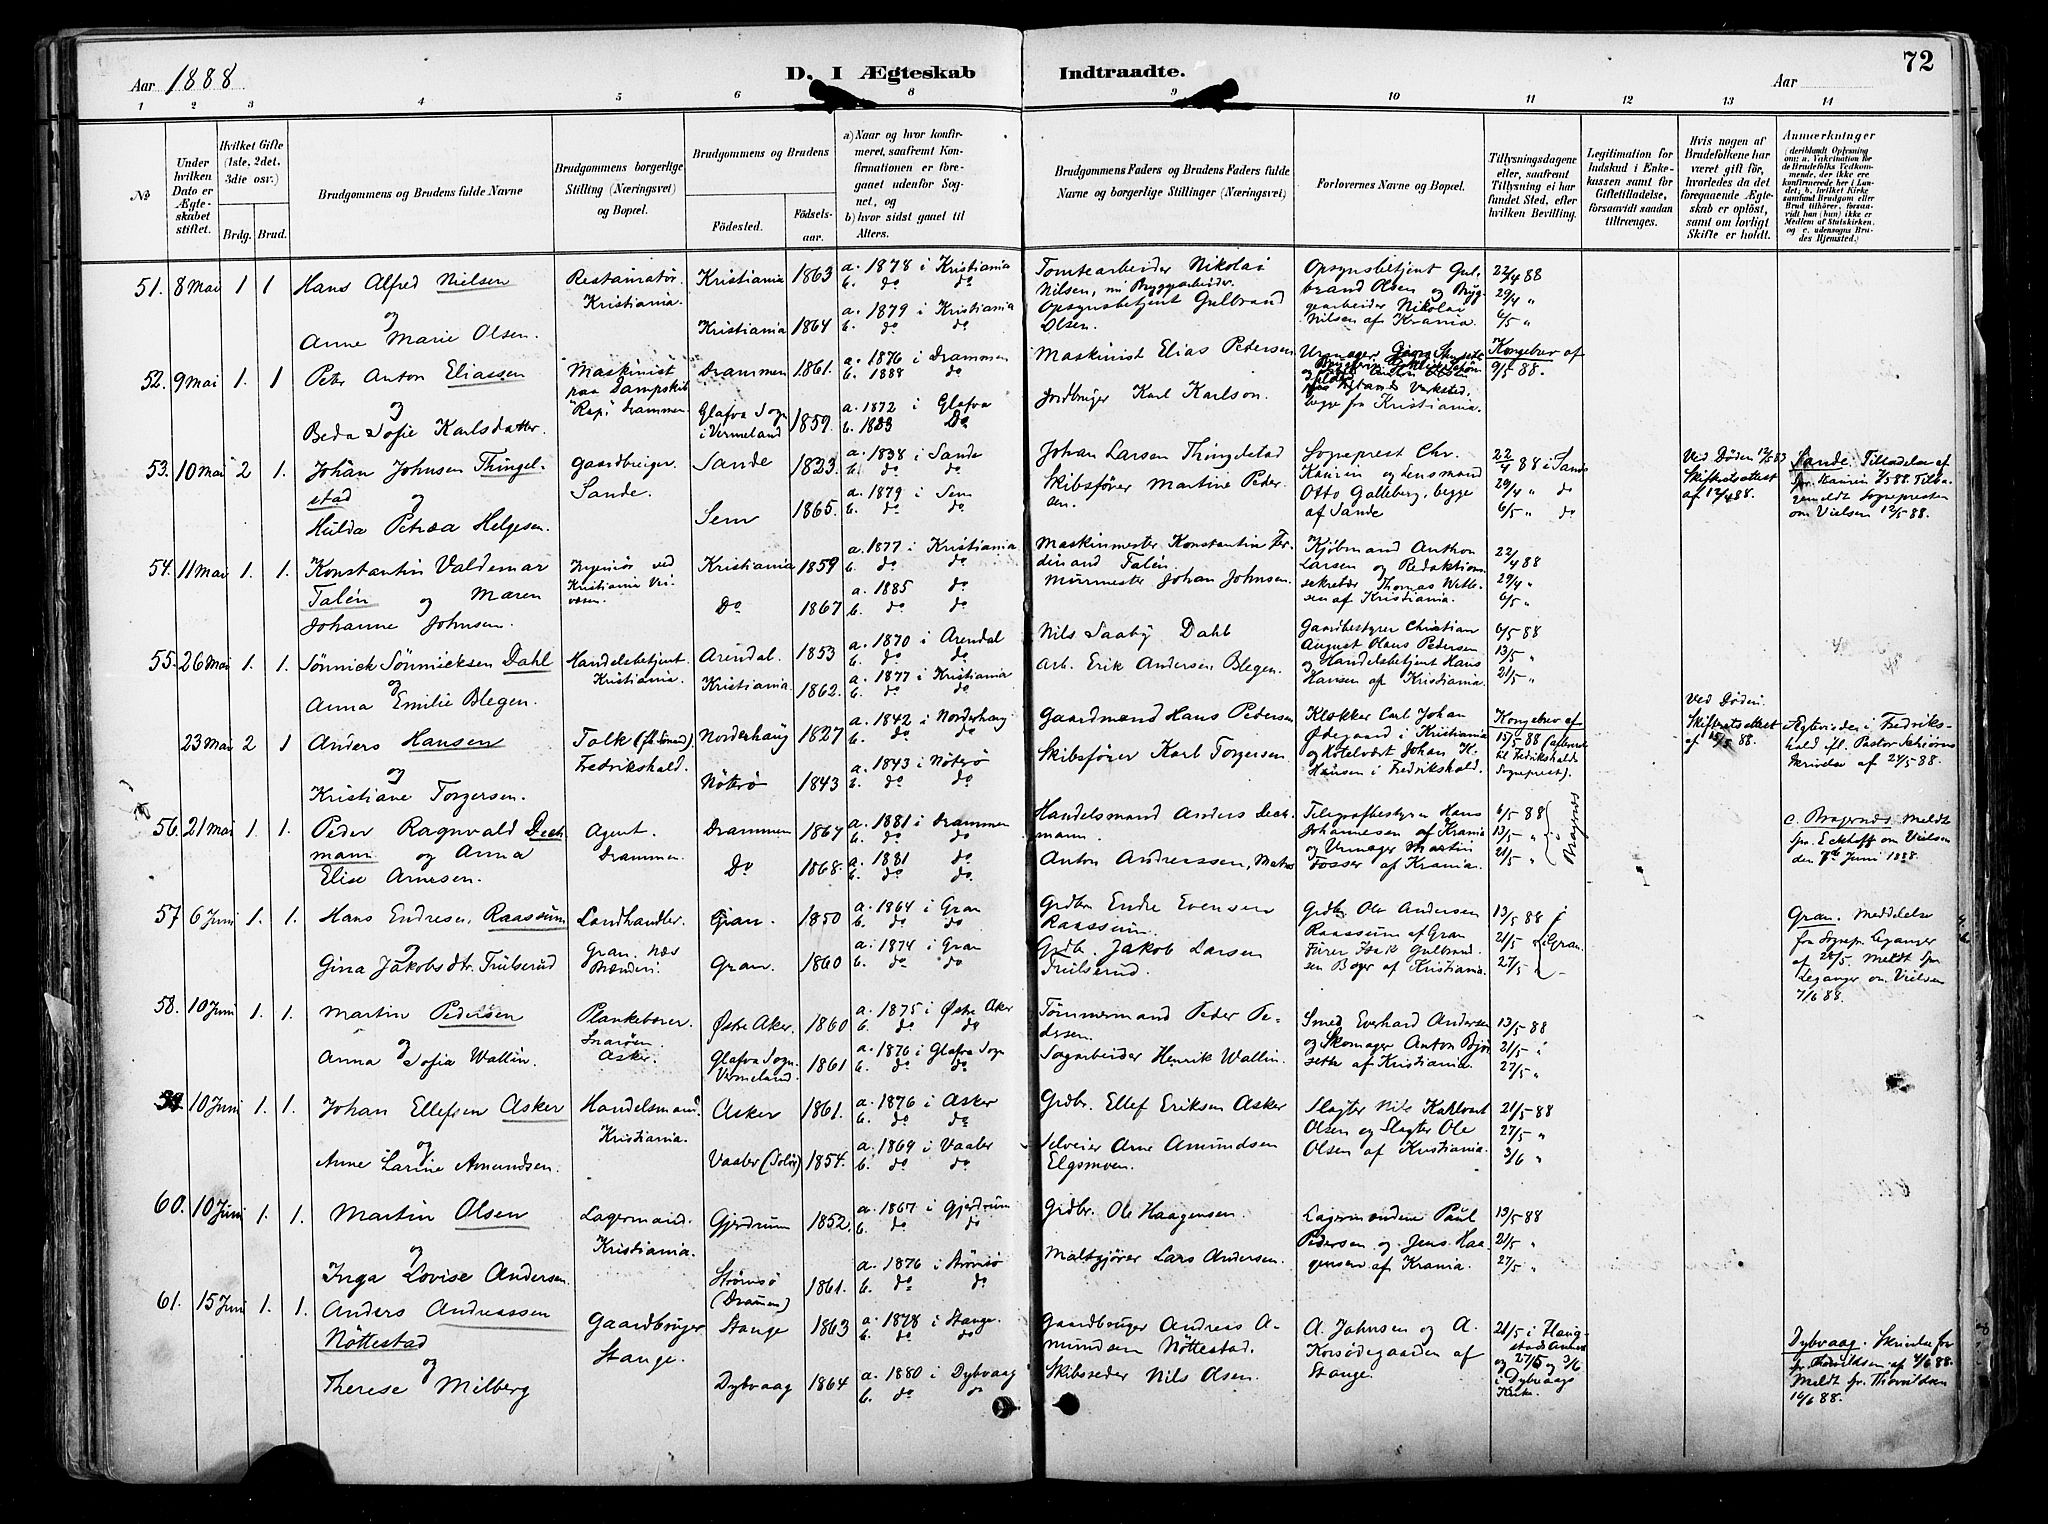 72
Aar 1888
D. I Ægteskab Indtraadte.
Aar
1 2 3 4 5 6 8 9 10 11 12 13 14
No
Under hvilken Dato er Ægteskabet stiftet.
Hvilket Gifte (1ste, 2det, 3die osv.)
Brdg. Brud.
Brudgommens og Brudens fulde Navne
Brudgommens borgerlige Stilling (Næringsvei) og Bopæl.
Brudgommens og Brudens
Fødested. Fødselsaar.
a) Naar og hvor konfirmeret, saafremt Konfirmationen er foregaaet udenfor Sognet, og
b) hvor sidst gaaet til Alters.
Brudgommens Faders og Brudens Faders fulde Navne og borgerlige Stillinger (Næringsvei)
Forlovernes Navne og Bopæl.
Tillysningsdagene eller, saafremt Tillysning ei har fundet Sted, efter hvilken Bevilling.
Legitimation for Indskud i Enkekassen samt for Giftetilladelse, forsaavidt saadan tiltrænges.
Hvis nogen af Brudefolkene har været gift før, hvorledes da det foregaaende Ægteskab er opløst, samt om lovligt Skifte er holdt.
Anmærkninger (deriblandt Oplysning om: a. Vakcination for de Brudefolks Vedkommende, der ikke ere konfirmerede her i Landet; b. hvilket Kirkesamfund Brudgom eller Brud tilhører, forsaavidt han (hun) ikke er Medlem af Statskirken, og c. udensogns Brudes Hjemsted.)
51. 8 Mai 1 1 Hans Alfred Nielsen Restauratør Kristiania 1863 a. 1878 i Kristiania Tomtearbeider Nikolai Opsynsbetjent Gul- 22/4 88
Kristiania. b. do do Nilsen, nu Bryggearbeider. brand Olsen og Bryg- 29/4 "
og Kristiania 1864 a. 1879 i Kristiania Opsynsbetjent Gulbrand gearbeider Nikolai 6/5 "
Anne Marie Olsen. b. do do Olsen. Nilsen af Krania.
52. 9 Mai 1. 1 Peter Anton Eliassen Maskinist Drammen 1861. a. 1876 i Drammen Maskinist Elias Pedersen Urmager Kongebrev af
paa Dampskib b. 1888 do 9/5 88.
og Drammen Glafva Sogn 1859. a. 1872 i Glafva Jordbruger Karl Karlson. Verksted,
Beda Sofie Karlsdatter. i Vermeland b. 1883 Do begge fra Kristiania.
53. 10 Mai 2 1. Johan Johnsen Thingel- Gaardbruger. Sande 1823. a. 1838 i Sande Johan Larsen Thingelstad Sogneprest Chr. 22/4 88 i Sande Ved Døden 12/5 83 Sande. Tilladelse af
stad Sande. b. do do Kaurin og Lensmand 29/4 " do Skifteretsattest spr. Kaurin
og Sem 1865. a. 1879 i Sem Skibsfører Martine Peder- Otto Galleberg, begge 6/5 " do af 12/4 88. meldt Sognepresten
Hulda Petrea Helgesen. b. do do sen. af Sande om Vielsen 12/5 88.
54. 11 Mai 1. 1. Konstantin Valdemar Ingeniør ved Kristiania 1859 a. 1877 i Kristiania Maskinmester Konstantin Fer- Kjøbmand Anthon 22/4 88
Talén og Maren Kristiania b. do do dinand Talén. Larsen og Redaktions 29/4 "
Do 1867 a. 1885 do Murmester Johan Johnsen. sekretær Thomas 6/5 "
Johanne Johnsen. b. do do af Kristiania.
55. 26 Mai 1. 1. Sønnick Sønnicksen Dahl Handelsbetjent. Arendal. 1853 a. 1870 i Arendal Nils Saaby Dahl Gaardbestyrer Christian 6/5 88
Kristiania. b. do do August Olaus Pedersen 13/5 "
og Kristiania. 1862. a. 1877 i Kristiania Arb. Erik Andersen Blegen. og Handelsbetjent Hans 21/5 "
Anna Emilie Blegen. b. do do Hansen af Kristiania.
23 Mai 2 1 Anders Hansen Tolk Norderhaug 1827 a. 1842 i Norderhaug Gaardmand Hans Pedersen Klokker Carl Johan Kongebrev af Ved Døden. Ægteviede i Fredriks-
Fredrikshald. b. do do Ødegaard i Kristiania 15/5 88 Skifteretsattest hald ifl. Pastor
og Nøterø 1843 a. 1843 i Nøterø Skibsfører Karl Torgersen. Johan H. til Fredrikshalds af 15/5 88. Skrivelse af 24/5 88.
Kristiane Torgersen. b. do do Hansen i Fredrikshald. Sogneprest).
56. 21 Mai 1. 1. Peder Ragnvald Deck- Agent. Drammen 1867 a. 1881 i Drammen Handelsmand Anders Deck- Telegrafbestyrer Hans 6/5 88 c. Bragernes. Meldt
mann og Anna Drammen. b. do do mann. Johannesen af Krania 13/5 " Bragnæs spr. Eckhoff om Vielsen
Elise Arnesen. Do 1868. a. 1881 do Anton Andreassen, og Urmager Martin 21/5 " den 7de Juni 1888.
b. do do Fosser af Krania.
57 6 Juni 1. 1. Hans Endresen Raassum Landhandler. Gran. 1850 a. 1864 i Gran Grdbr. Endre Evensen Grdbr. Ole Andersen 13/5 88 Gran. Meddelse
Gran. nær b. do do Raassum. Raassum af Gran 21/5 " Gran. fra Sognepr. Leganger
og Brænderi. Gran. 1860 a. 1874 i Gran Grdb. Jakob Larsen Fører Isak Gulbrand- 27/5 " af 28/5. Meldt spr.
Gina Jakobsdtr. Trulserud b. do do Trulserud. sen Bager af Kristiania. Leganger om Vielsen
7/6 88.
58. 10 Juni 1. 1. Martin Pedersen Plankebærer. Østre Aker. 1860 a. 1875 i Østre Aker Tømmermand Peder Pe- Smed Everhard Andersen 13/5 88
Snarøen b. do do dersen. og Skomager Anton Bjør- 21/5 "
og Asker. Glafva Sogn 1861 a. 1876 i Glafva Sogn Sagarbeider Henrik Wallin. sette af Kristiania. 27/5 "
Anna Sofia Wallin. Vermeland. b. do do
59. 10 Juni 1. 1. Johan Ellefsen Asker Handelsmand. Asker 1861. a. 1876 i Asker Grdbr. Ellef Eriksen Asker Slagter Nils Kahlvart 21/5 88
Kristiania. b. do do Olsen og Slagter Ole 27/5 "
og Vaaler (Solør) 1854. a. 1869 i Vaaler Selveier Arne Amundsen Olsen af Kristiania. 3/6 "
Anne Larine Amundsen. b. do do Elgsmoen.
60. 10 Juni 1. 1. Martin Olsen Lagermand. Gjerdrum 1852. a. 1867 i Gjerdrum Grdbr. Ole Haagensen. Lagermændene Paul 13/5 88
og Kristiania. b. do do Pedersen og Jens Haa- 21/5 "
Inga Lovise Andersen. Strømsø 1861. a. 1876 i Strømsø Maltgjører Lars Andersen. gensen af Krania. 27/5 "
(Dramen) b. do do
61. 15 Juni 1. 1. Anders Andreassen Gaardbruger Stange 1863 a. 1878 i Stange. Gaardbruger Andreas A- A. Johnsen og A. 21/5 i Haug- Dybvaag. Skrivelse fra
Nøttestad Stange. b. do do mundsen Nøttestad. Korsødegaarden af stad Annex spr. Thorvildsen af 4/6 88.
og Dybvaag 1864 a. 1880 i Dybvaag Skibsreder Nils Olsen. Stange. og 27/5 og 3/6 Meldt spr. Thorvildsen
Therese Milberg b. do do i Dybvaag Kirke. 16/6 88.